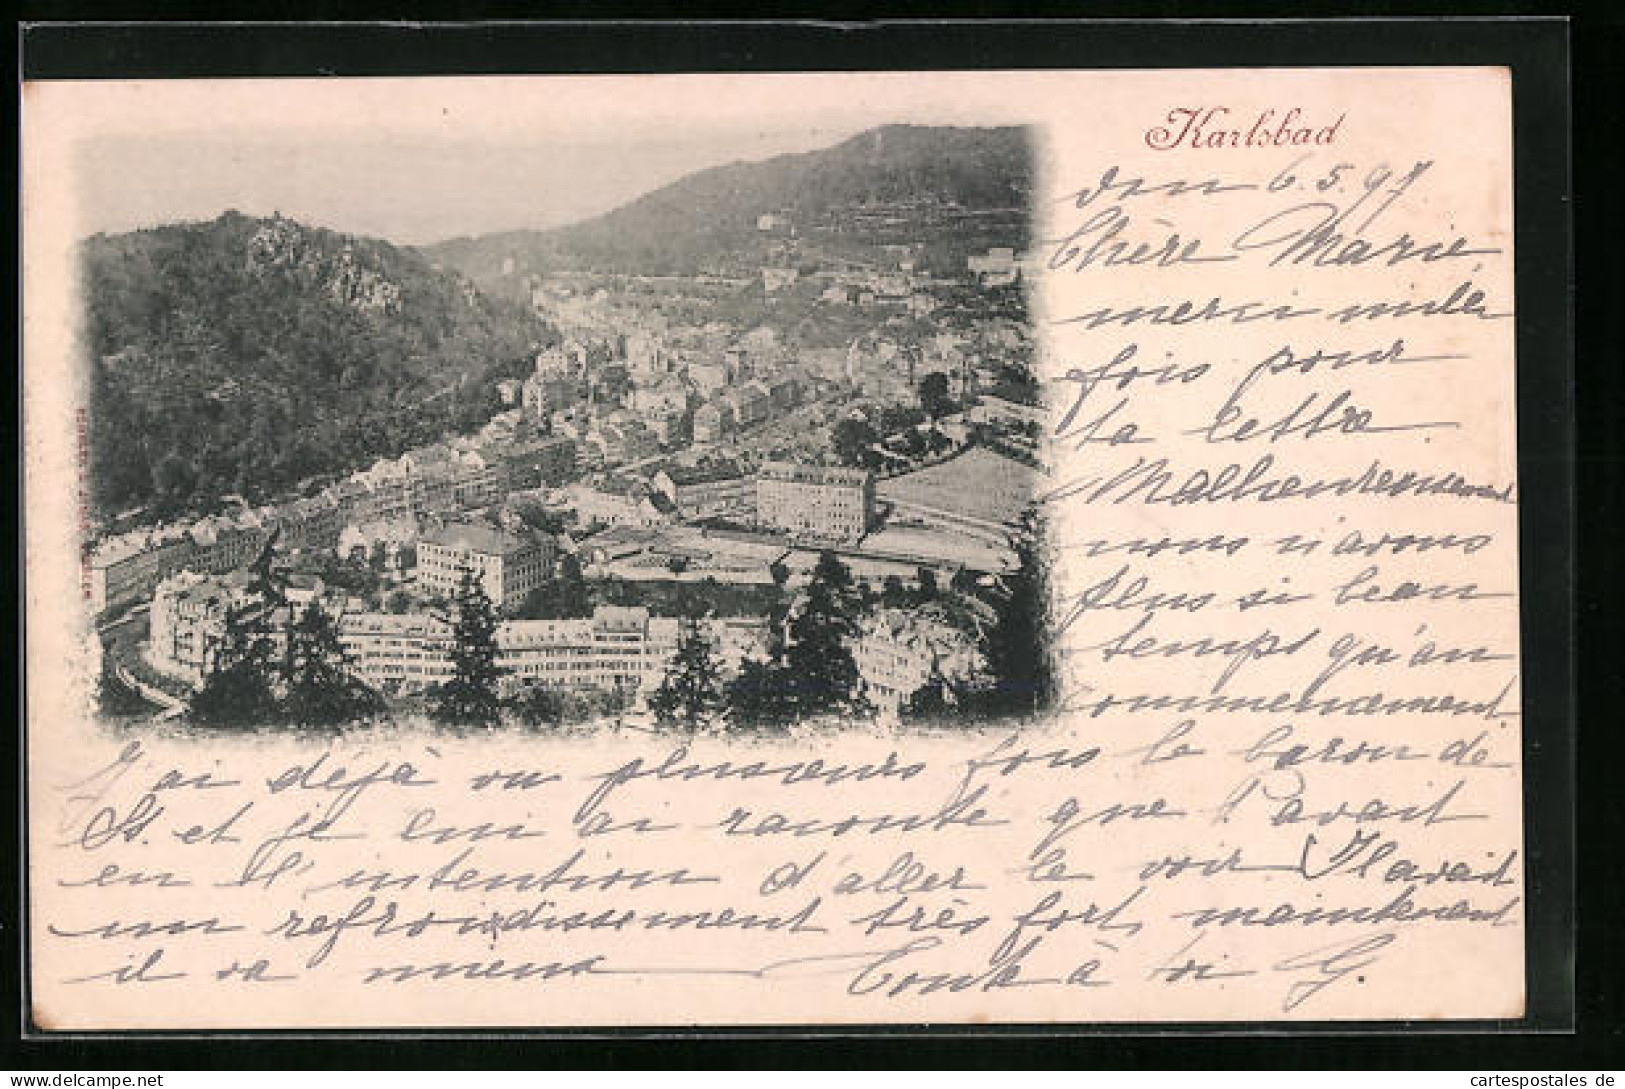 Karlsbad
den 6.5.97
Chère Marie,
merci mille
fois pour
ta lettre.
Malheureusement
nous n'avons
plus si beau
temps qu'au
commencement.
J'ai déjà vu plusieurs fois le baron de
St. et je lui ai raconté que l'avait
en l'intention d'aller le voir Il avait
un refroidissement très fort, maintenant
il va mieux Toute à toi G.
cartespostales de